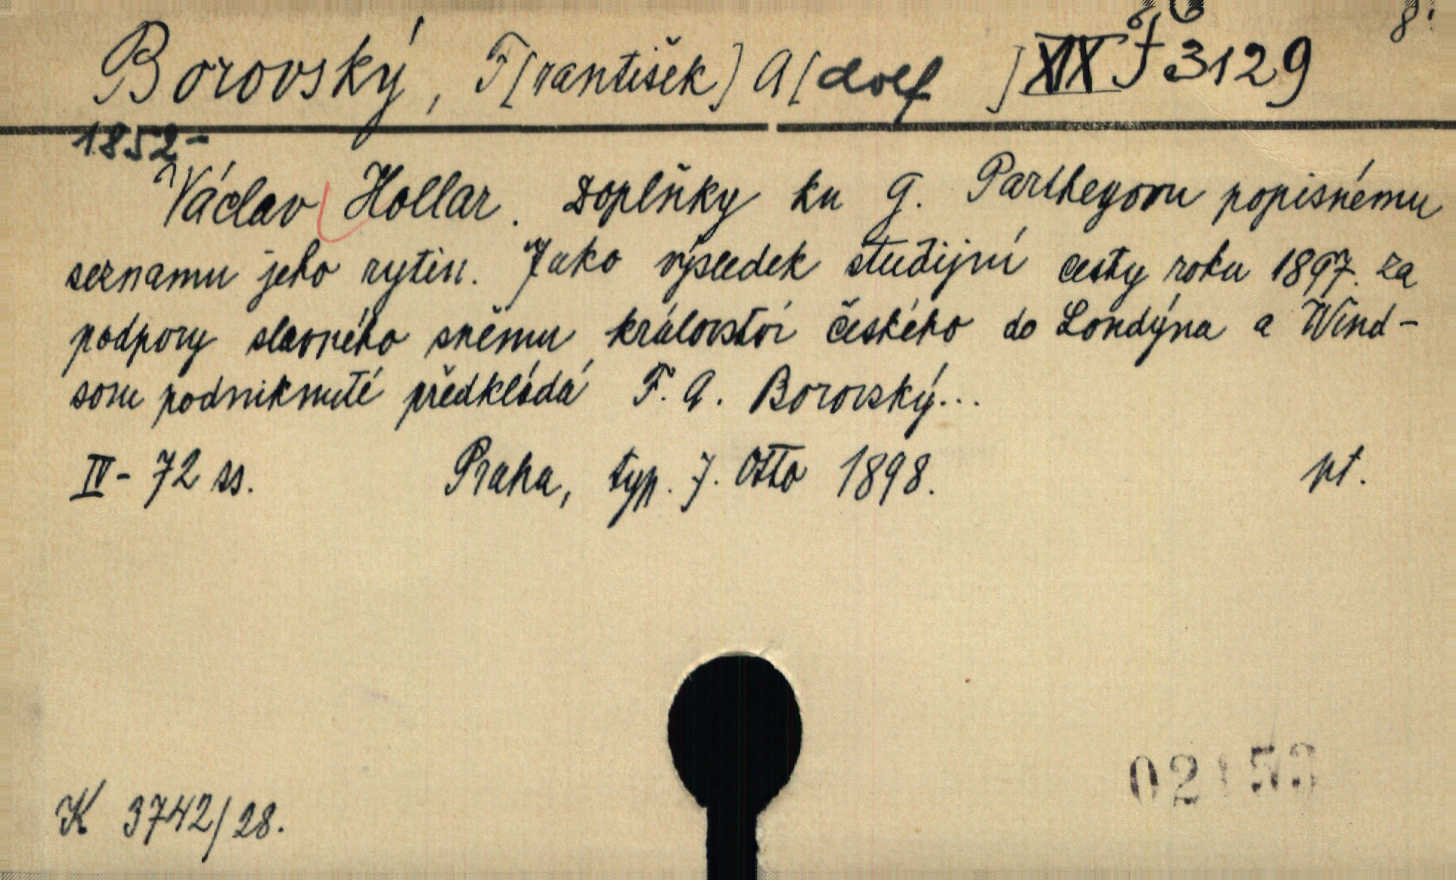 8°
Borovský, F[rantišek] A[dolf ] XIX J 3129
1852-
Václav Hollar. Doplňky ku G. Partheyovu popisnému
seznamu jeho rytin. Jako výsledek studijní cesty roku 1897. za
podpory slavného sněmu království českého do Londýna a Wind-
soru podniknuté předkládá F. A. Borovský...
IV- 72 ss. Praha, typ. J. Otto 1898. pt.
02153
K 3742/28.